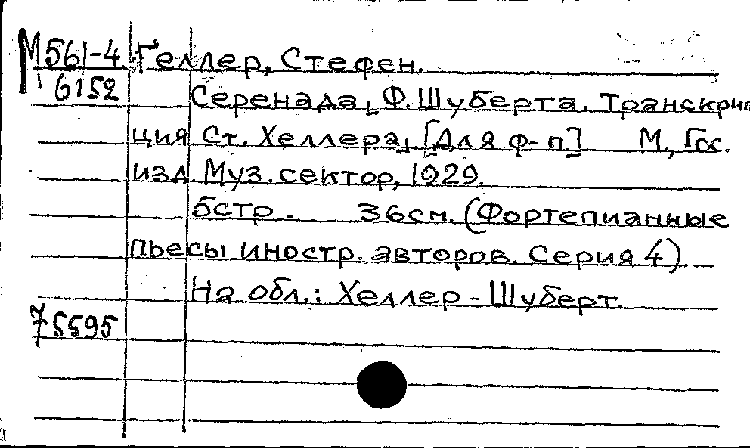 М561-4 Геллер, Стефен.
6152
Серенада, Ф. Шуберта. Транскрип
ция Ст. Хеллера, [Для ф-п] М, Гос.
изд Муз. сектор, 1929.
6стр. 36см. (Фортепианные
пьесы иностр. авторов. Серия 4)
На обл.: Хеллер - Шуберт.
75595